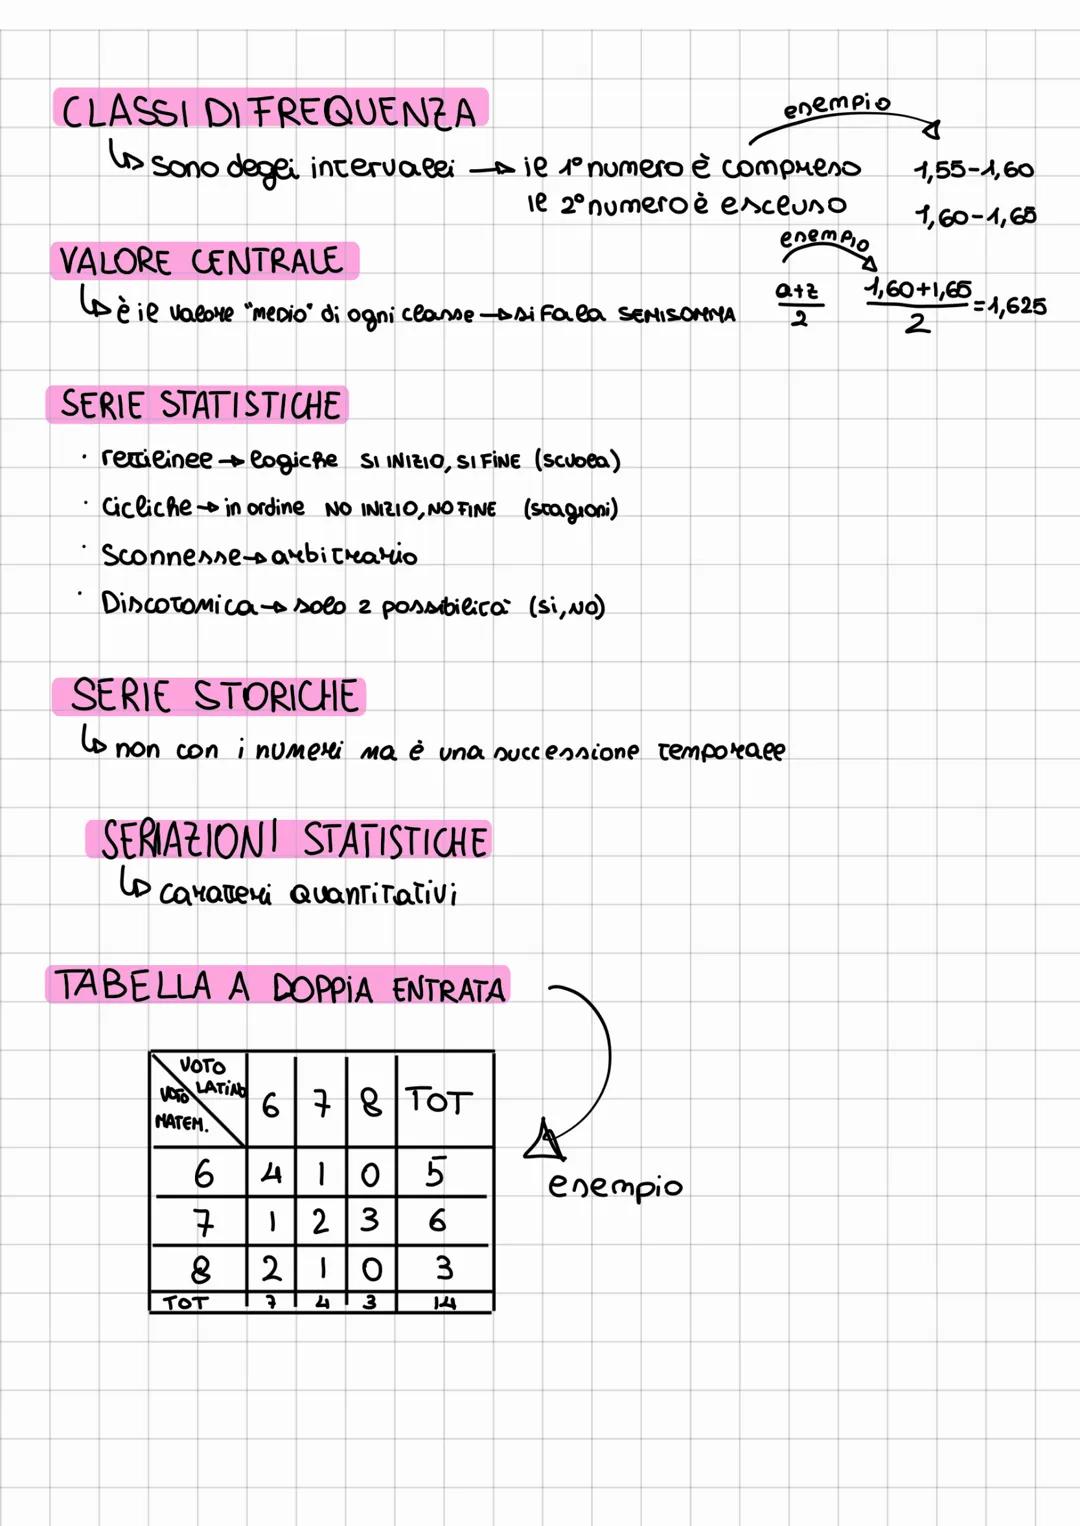 CLASSI DI FREQUENZA
esempio
↳ sono degli intervalli → il 1° numero è compreso 1,55-1,60
il 2° numero è escluso 1,60-1,65
esempio
VALORE CENTRALE
↳ è il valore "MEDIO" di ogni classe → si fa la SEMISOMMA a+z/2 1,60+1,65/2 = 1,625
SERIE STATISTICHE
· rettilinee → logiche SI INIZIO, SI FINE (scuola)
· Cicliche → in ordine NO INIZIO, NO FINE (stagioni)
· Sconnesse → arbitrario
· Discotomica → solo 2 possibilità (si, NO)
SERIE STORICHE
↳ non con i numeri ma è una successione temporale
SERIAZIONI STATISTICHE
↳ caratteri quantitativi
TABELLA A DOPPIA ENTRATA
VOTO LATINO
VOTO MATEM.
6 7 8 TOT
6 4 1 0 5
7 1 2 3 6
8 2 1 0 3
TOT 7 4 3 14
esempio